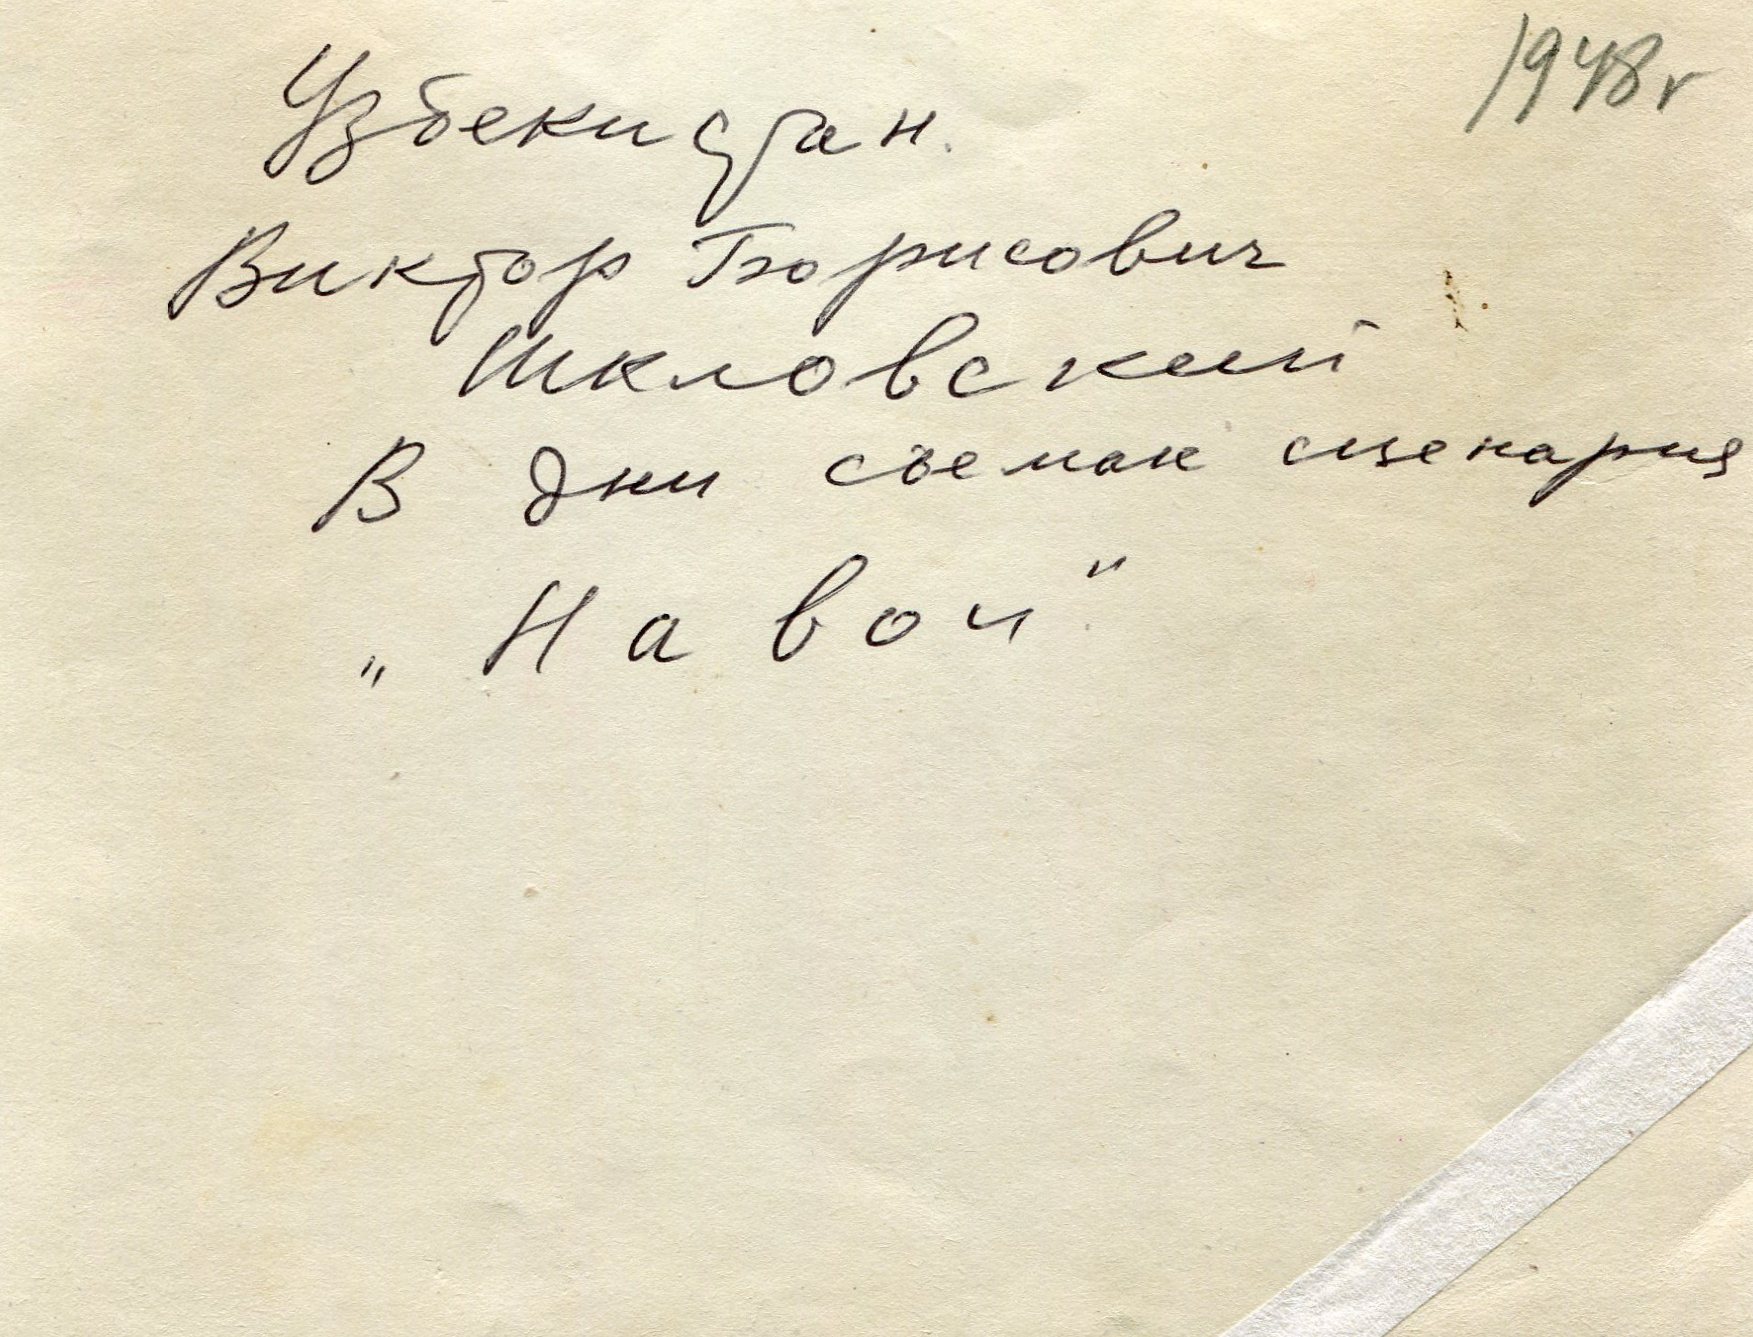 1948г
Узбекистан.
Виктор Борисович
Шкловский
В дни съемок сценария
„Навои"